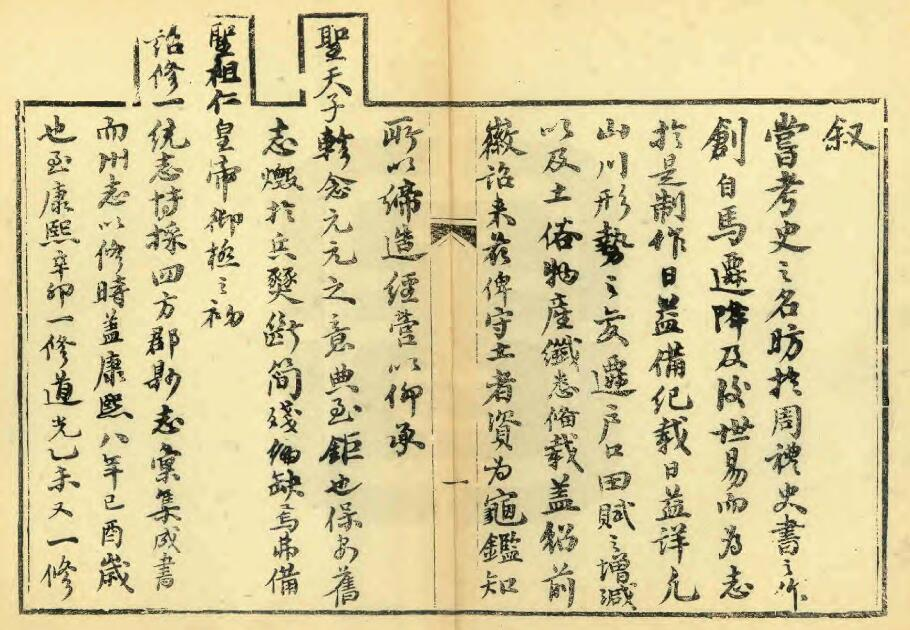 叙
嘗考史之名昉於周禮史書之作
創自馬遷降及後世易而為志
於是制作日益備紀載日益詳凡
山川形勢之變遷戶口田賦之增減
以及土俗物產纖悉備載蓋銘前
徽詔來茲俾守土者資為龜鑑知
一
所以締造經營以仰承
聖天子軫念元元之意典至鉅也保安舊
志燬於兵燹斷簡殘編缺焉弗備
聖祖仁皇帝御極之初
詔修一統志博採四方郡縣志彙集成書
而州志以修時蓋康熙八年己酉歲
也至康熙辛卯一修道光乙未又一修